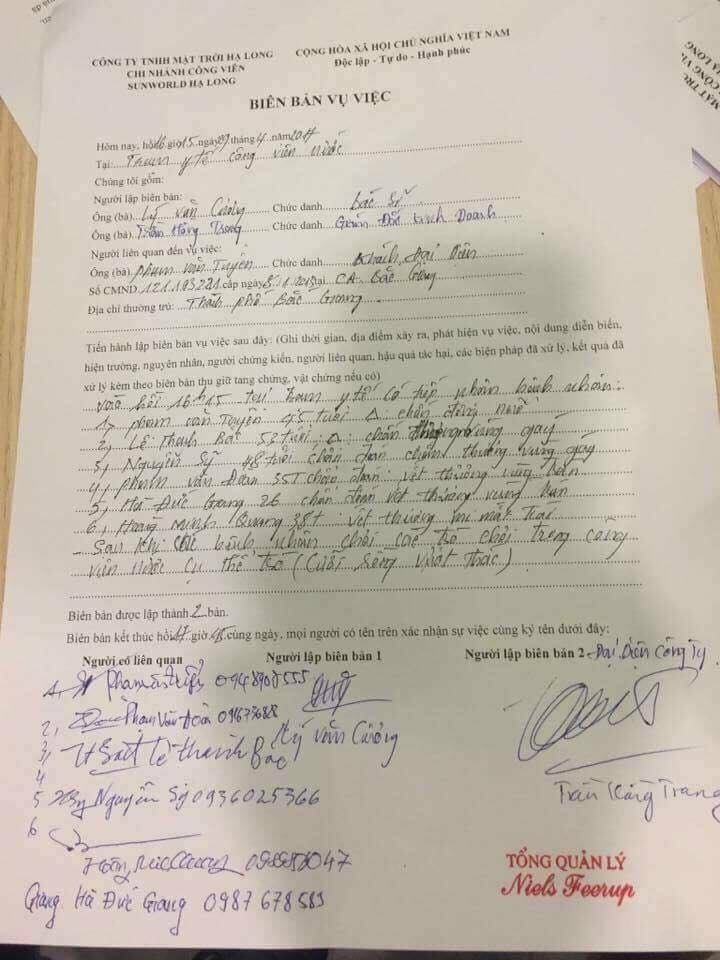 CÔNG TY TNHH MẶT TRỜI HẠ LONG
CHI NHÁNH CÔNG VIÊN
SUNWORLD HẠ LONG
CỘNG HÒA XÃ HỘI CHỦ NGHĨA VIỆT NAM
Độc lập - Tự do - Hạnh phúc
BIÊN BẢN VỤ VIỆC
Hôm nay, hồi 16 giờ 15 ngày 29 tháng 4 năm 2017
Tại: Tram y tế công viên nước
Chúng tôi gồm:
Người lập biên bản:
Ông (bà) Lý Văn Cường Chức danh bác sĩ
Ông (bà) Trần Hồng Trang Chức danh Giám Đốc kinh Doanh
Người liên quan đến vụ việc:
Ông (bà) phạm văn Tuyên Chức danh Khách Đại diện
Số CMND 121193221 cấp ngày 2013 tại CA Bắc Giang
Địa chỉ thường trú: Thành phố Bắc Giang
Tiến hành lập biên bản vụ việc sau đây: (Ghi thời gian, địa điểm xảy ra, phát hiện vụ việc, nội dung diễn biến,
hiện trường, nguyên nhân, người chứng kiến, người liên quan, hậu quả tác hại, các biện pháp đã xử lý, kết quả đã
xử lý kèm theo biên bản thu giữ tang chứng, vật chứng nếu có)
vào hồi 16h15 tại tram y tế có tiếp nhận bệnh nhân:
1, phạm văn Tuyên 45 tuổi Δ: chấn động não
2, Lê Thanh Bắc 53 tuổi: Δ: chấn thương vùng gáy
3, Nguyễn Sỹ 48 tuổi chẩn đoán chấn thương vùng gáy
4, phạm văn Đoàn 55T chẩn đoán: vết thương vùng trán
5, Hà Đức Giang 26 chẩn đoán vết thương vùng trán
6, Hoàng Minh Quang 38t: vết thương mi mắt trái
- Sau khi các bệnh nhân chơi các trò chơi trong công
viên nước cụ thể trò (Cưỡi Sóng Vượt Thác)
Biên bản được lập thành 2 bản.
Biên bản kết thúc hồi 17 giờ 45 cùng ngày, mọi người có tên trên xác nhận sự việc cùng ký tên dưới đây:
Người có liên quan
Người lập biên bản 1
Người lập biên bản 2 - Đại Diện Công Ty
1, 0948908555
2, Phạm Văn Đoàn
Lý Văn Cường
3, Lê Thanh Bắc
4
5 Nguyễn Sỹ 0936025366
6
Trần Hồng Trang
TỔNG QUẢN LÝ
Niels Feerup
Giang Hà Đức Giang 0987678589